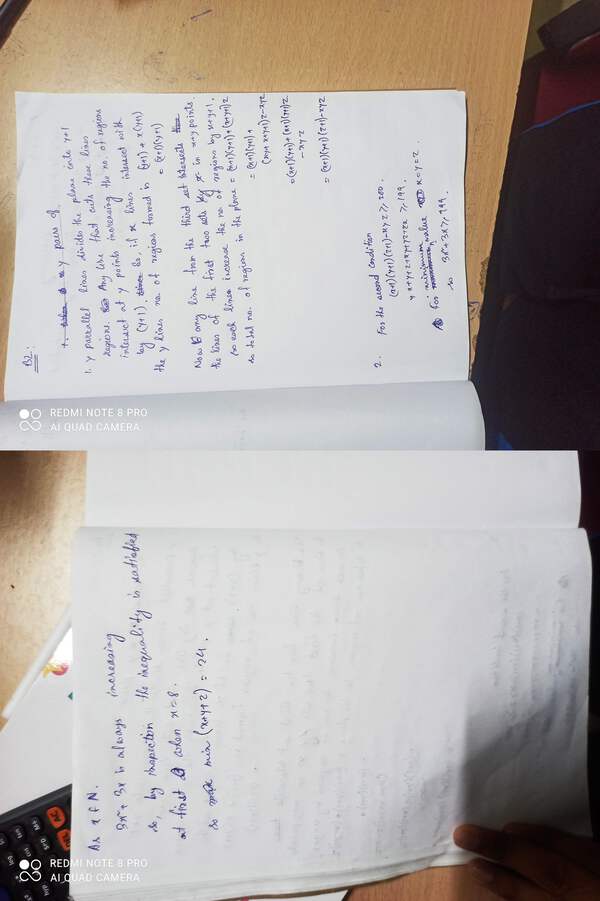 B2:
y pairs of
1. y parrallel lines divides the plane into y+1
regions. Any line that cuts these lines
intersect at y points increasing the no. of regions
by (y+1). So, if x lines intersect with
the y lines no. of regions formed is (y+1) + x(y+1)
= (x+1)(y+1)
Now any line from the third set intersects
the lines of the first two sets in x+y points.
So each lines increase the no. of regions by x+y+1.
So total no. of regions in the plane = (x+1)(y+1)+(x+y+1)z
= (x+1)(y+1) +
(xy+x+y+1)z-xyz
= (x+1)(y+1)+(x+1)(y+1)z
- xyz
= (x+1)(y+1)(z+1)-xyz
2. For the second condition
(x+1)(y+1)(z+1)-xyz ≥ 200.
x+y+z+xy+yz+zx ≥ 199.
for minimum value x=y=z.
so
3x²+3x ≥ 199.
REDMI NOTE 8 PRO
AI QUAD CAMERA
As x ∈ N.
3x²+3x is always increasing
so, by inspection the inequality is satisfied
at first when x=8.
so min (x+y+z) = 24.
REDMI NOTE 8 PRO
AI QUAD CAMERA